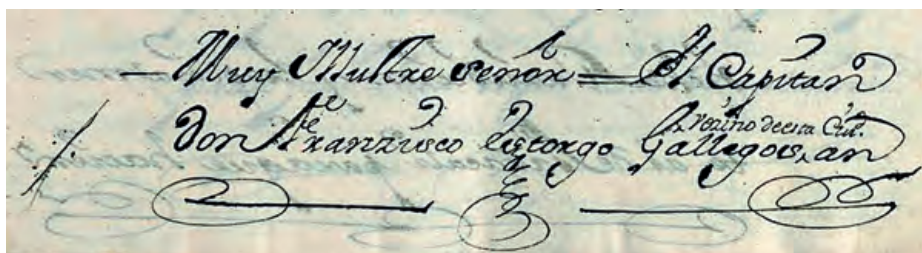 Muy Illustre señor = El Capitan
Don Franzisco Listorgo Gallegos, vezino desta Ciu.d an